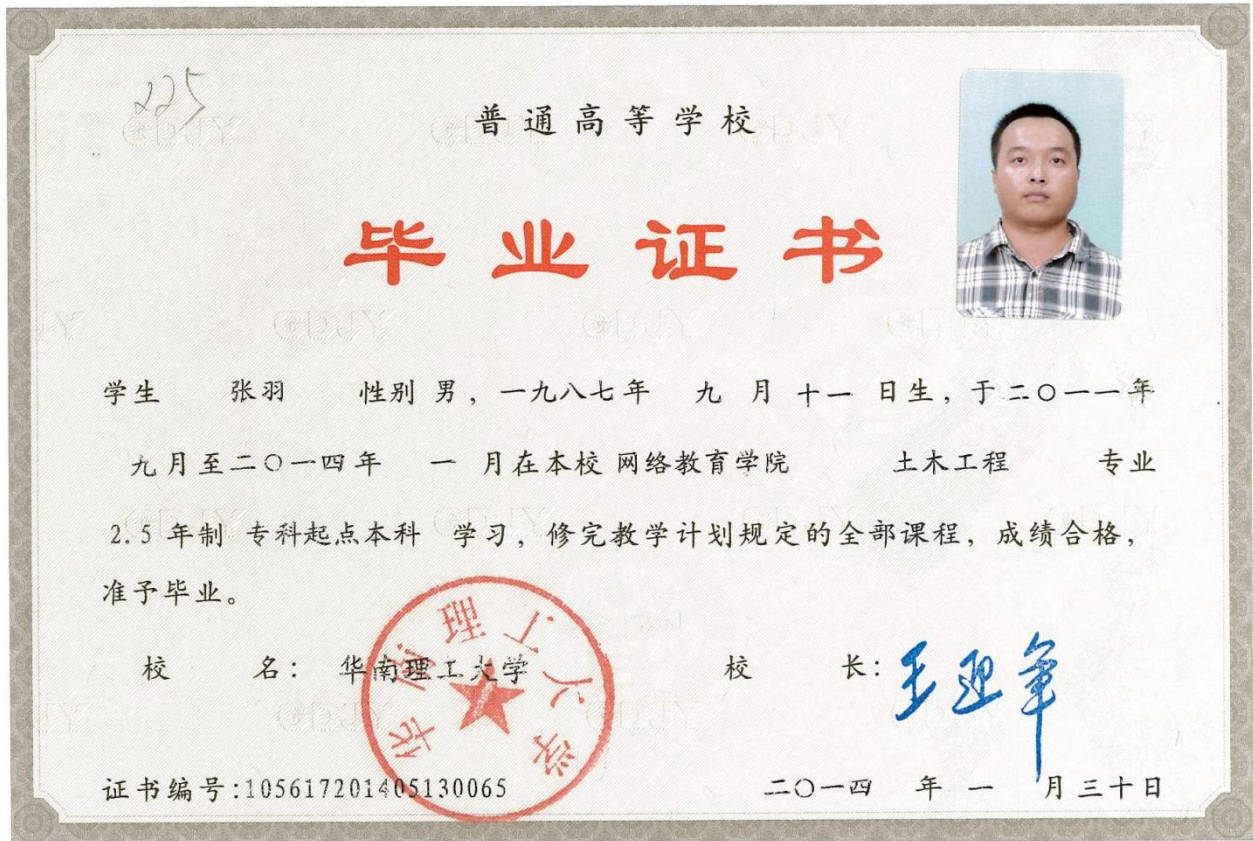 225
普通高等学校
毕业证书
学生 张羽 性别 男，一九八七年 九 月 十一 日生，于二〇一一年
九月至二〇一四年 一 月在本校 网络教育学院 土木工程 专业
2.5 年制 专科起点本科 学习，修完教学计划规定的全部课程，成绩合格，
准予毕业。
校 名： 华南理工大学 校 长：王迎军
华南理工大学
证书编号:105617201405130065 二〇一四 年 一 月三十日